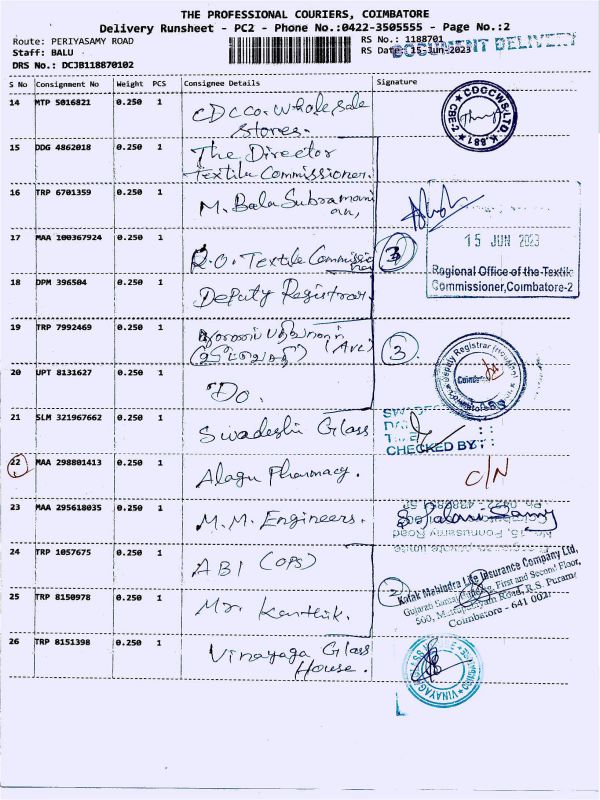 THE PROFESSIONAL COURIERS, COIMBATORE
Delivery Runsheet - PC2 - Phone No.:0422-3505555 - Page No.:2
Route: PERIYASAMY ROAD
RS No.: 1188701
Staff: BALU
RS Date: 15-Jun-2023
DOCUMENT DELIVERY
DRS No.: DCJB118870102
S No Consignment No Weight PCS Consignee Details Signature
14 MTP 5016821 0.250 1 CDC Co. Wholesale
Stores.
CDCCWS LTD. K.881 CBE-2
15 DDG 4862018 0.250 1 The Director
Textile Commissioner.
16 TRP 6701359 0.250 1 M. Bala Subramani
an,
15 JUN 2023
17 MAA 100367924 0.250 1 R.O. Textile Commissio
ner
3
Regional Office of the Textile
Commissioner, Coimbatore-2
18 DPM 396504 0.250 1 Deputy Registrar.
19 TRP 7992469 0.250 1
3
Deputy Registrar
20 UPT 8131627 0.250 1 Do.
21 SLM 321967662 0.250 1 Swadeshi Glass
CHECKED BY:
22 MAA 298801413 0.250 1 Alagu Pharmacy.
23 MAA 295618035 0.250 1 M.M. Engineers.
S. Palani Samy
No. 15, Ponnusamy Road
24 TRP 1057675 0.250 1 ABI (OPS)
Kotak Mahindra Life Insurance Company Ltd,
25 TRP 8150978 0.250 1 Mr. Karthik.
2
First and Second Floor,
R.S. Puram,
Coimbatore - 641 002.
26 TRP 8151398 0.250 1 Vinayaga Glass
House.